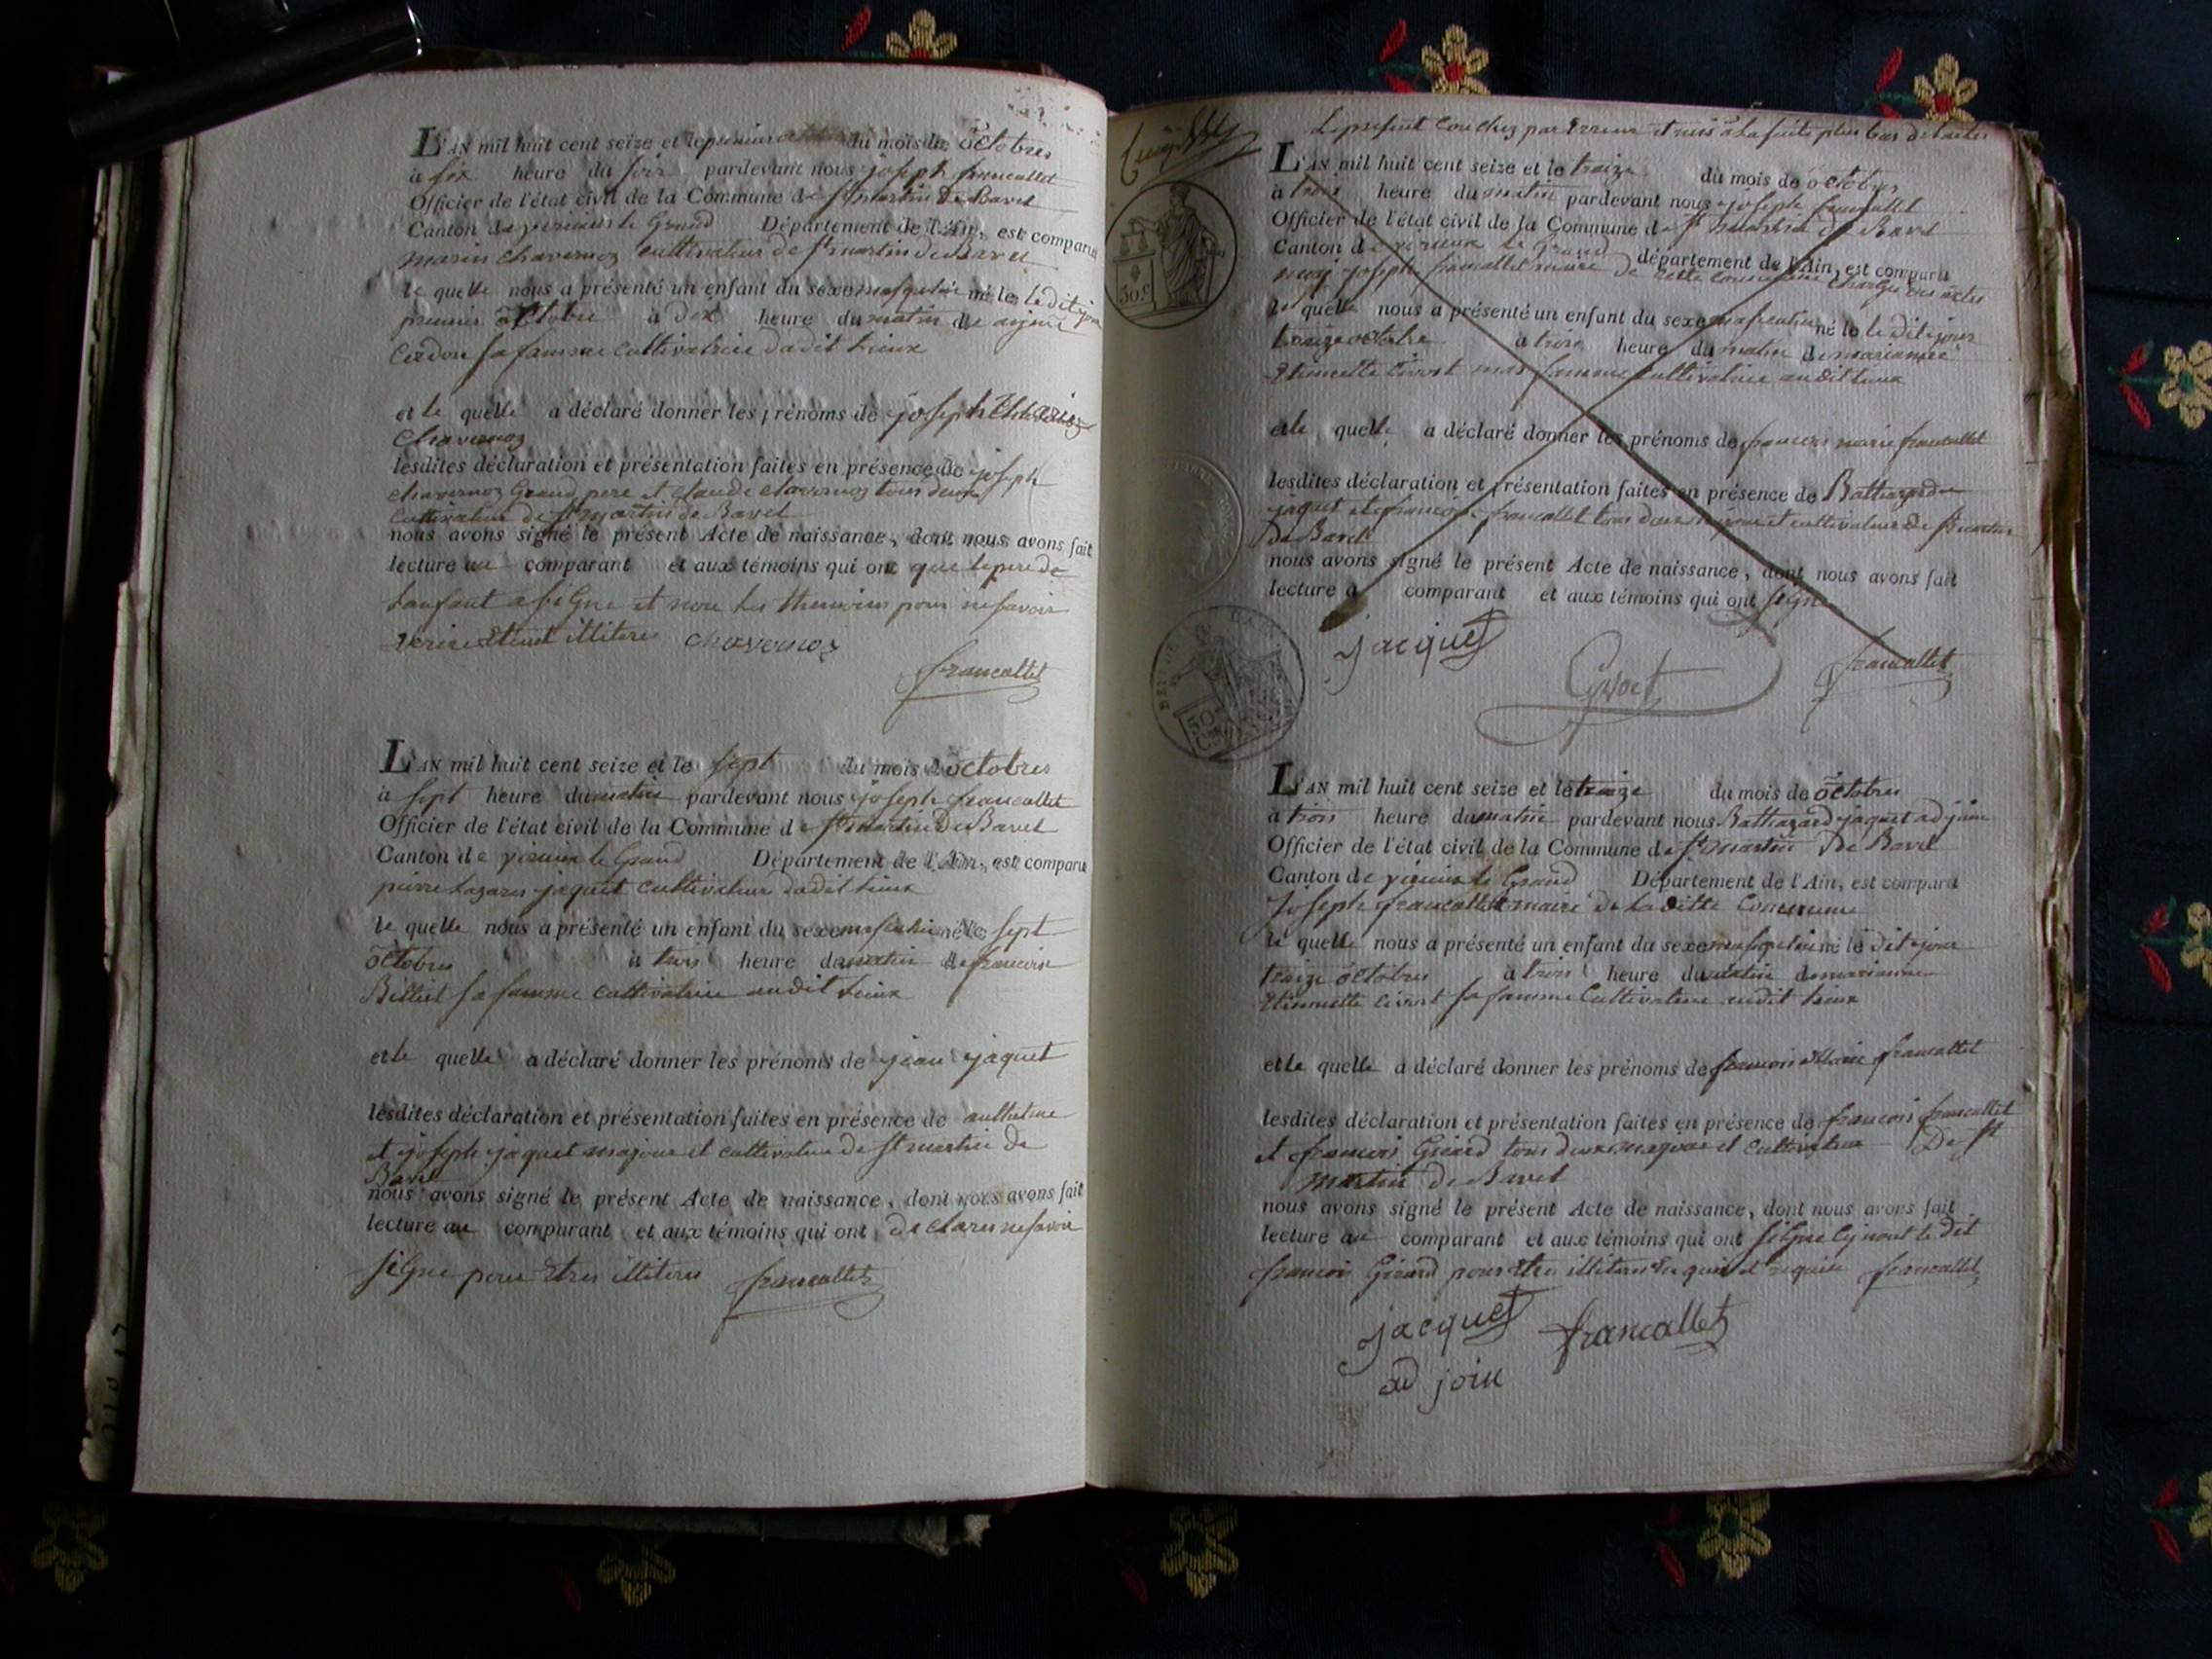 L'AN mil huit cent seize et le premier du mois de octobres
à six heure du soir pardevant nous joseph francallet
Officier de l'état civil de la Commune de St martin De Bavel
Canton de virieux le Grand Département de l'Ain, est comparu
marin chavernoz cultivateur de St martin de Bavel
le quelle nous a présenté un enfant du sexe masqulin né le le dit jour
premier octobre à dix heure du matin de
Cerdon sa famme cultivatrice dudit Lieux
et le quelle a déclaré donner les prénoms de joseph
Chavernoz
lesdites déclaration et présentation faites en présence de joseph
chavernoz Grand pere et claude chavernoz tous deux
cultivateur de St martin de Bavel
nous avons signé le présent Acte de naissance, dont nous avons fait
lecture au comparant et aux témoins qui ont que le pere de
Lanfant a siGne et non les themoins pour ne savoir
Etant illiteres chavernoz
francallet
L'AN mil huit cent seize et le sept du mois d octobres
à sept heure du matin pardevant nous joseph francallet
Officier de l'état civil de la Commune de St martin De Bavel
Canton de virieux le Grand Département de l'Ain, est comparu
pierre Lazares jaquet cultivateur dudit Lieux
le quelle nous a présenté un enfant du sexe masculin né le sept
octobres à trois heure du matin de francoise
Billiet sa famme cultivatrice audit Lieux
et le quelle a déclaré donner les prénoms de jean jaquet
lesdites déclaration et présentation faites en présence de anthelme
et joseph jaquet majeur et cultivateur de St martin de
Bavel
nous avons signé le présent Acte de naissance, dont nous avons fait
lecture au comparant et aux témoins qui ont declares ne savoir
siGne pour Etres illiteres francallet
Le present couchez par Erreur et mis à la suite plus bas
L'AN mil huit cent seize et le traize du mois de octobres
à trois heure du matin pardevant nous joseph francallet
Officier de l'état civil de la Commune de St martin de Bavel
Canton de virieux le Grand département de l'Ain, est comparu
moi joseph francallet maire de cette commune
le quelle nous a présenté un enfant du sexe masculin né le le dit jour
traize octobre à trois heure du matin de marianne
Etiennette Civost ma famme cultivatrice audit Lieux
et le quelle a déclaré donner les prénoms de francois marie francallet
lesdites déclaration et présentation faites en présence de Balthazard
jaquet et francois francallet tous deux majeur et cultivateur de St martin
De Bavel
nous avons signé le présent Acte de naissance, dont nous avons fait
lecture a comparant et aux témoins qui ont signe
jacquet
francallet
50 C
L'AN mil huit cent seize et le traize du mois de octobres
à trois heure du matin pardevant nous Balthazard jaquet adjoin
Officier de l'état civil de la Commune de St martin De Bavel
Canton de virieux le Grand Département de l'Ain, est comparu
joseph francallet maire de La ditte commune
le quelle nous a présenté un enfant du sexe masqulin né le dit jour
traize octobres à trois heure du matin de marianne
Etiennette Civost sa famme Cultivatrice audit Lieux
et le quelle a déclaré donner les prénoms de francois Marie francallet
lesdites déclaration et présentation faites en présence de francois francallet
et francois Girard tous deux majeur et cultivateur De St
Martin de Bavel
nous avons signé le présent Acte de naissance, dont nous avons fait
lecture au comparant et aux témoins qui ont siGne le dit
francois Girard pour Etre illiteres francallet
jacquet francallet
ad join